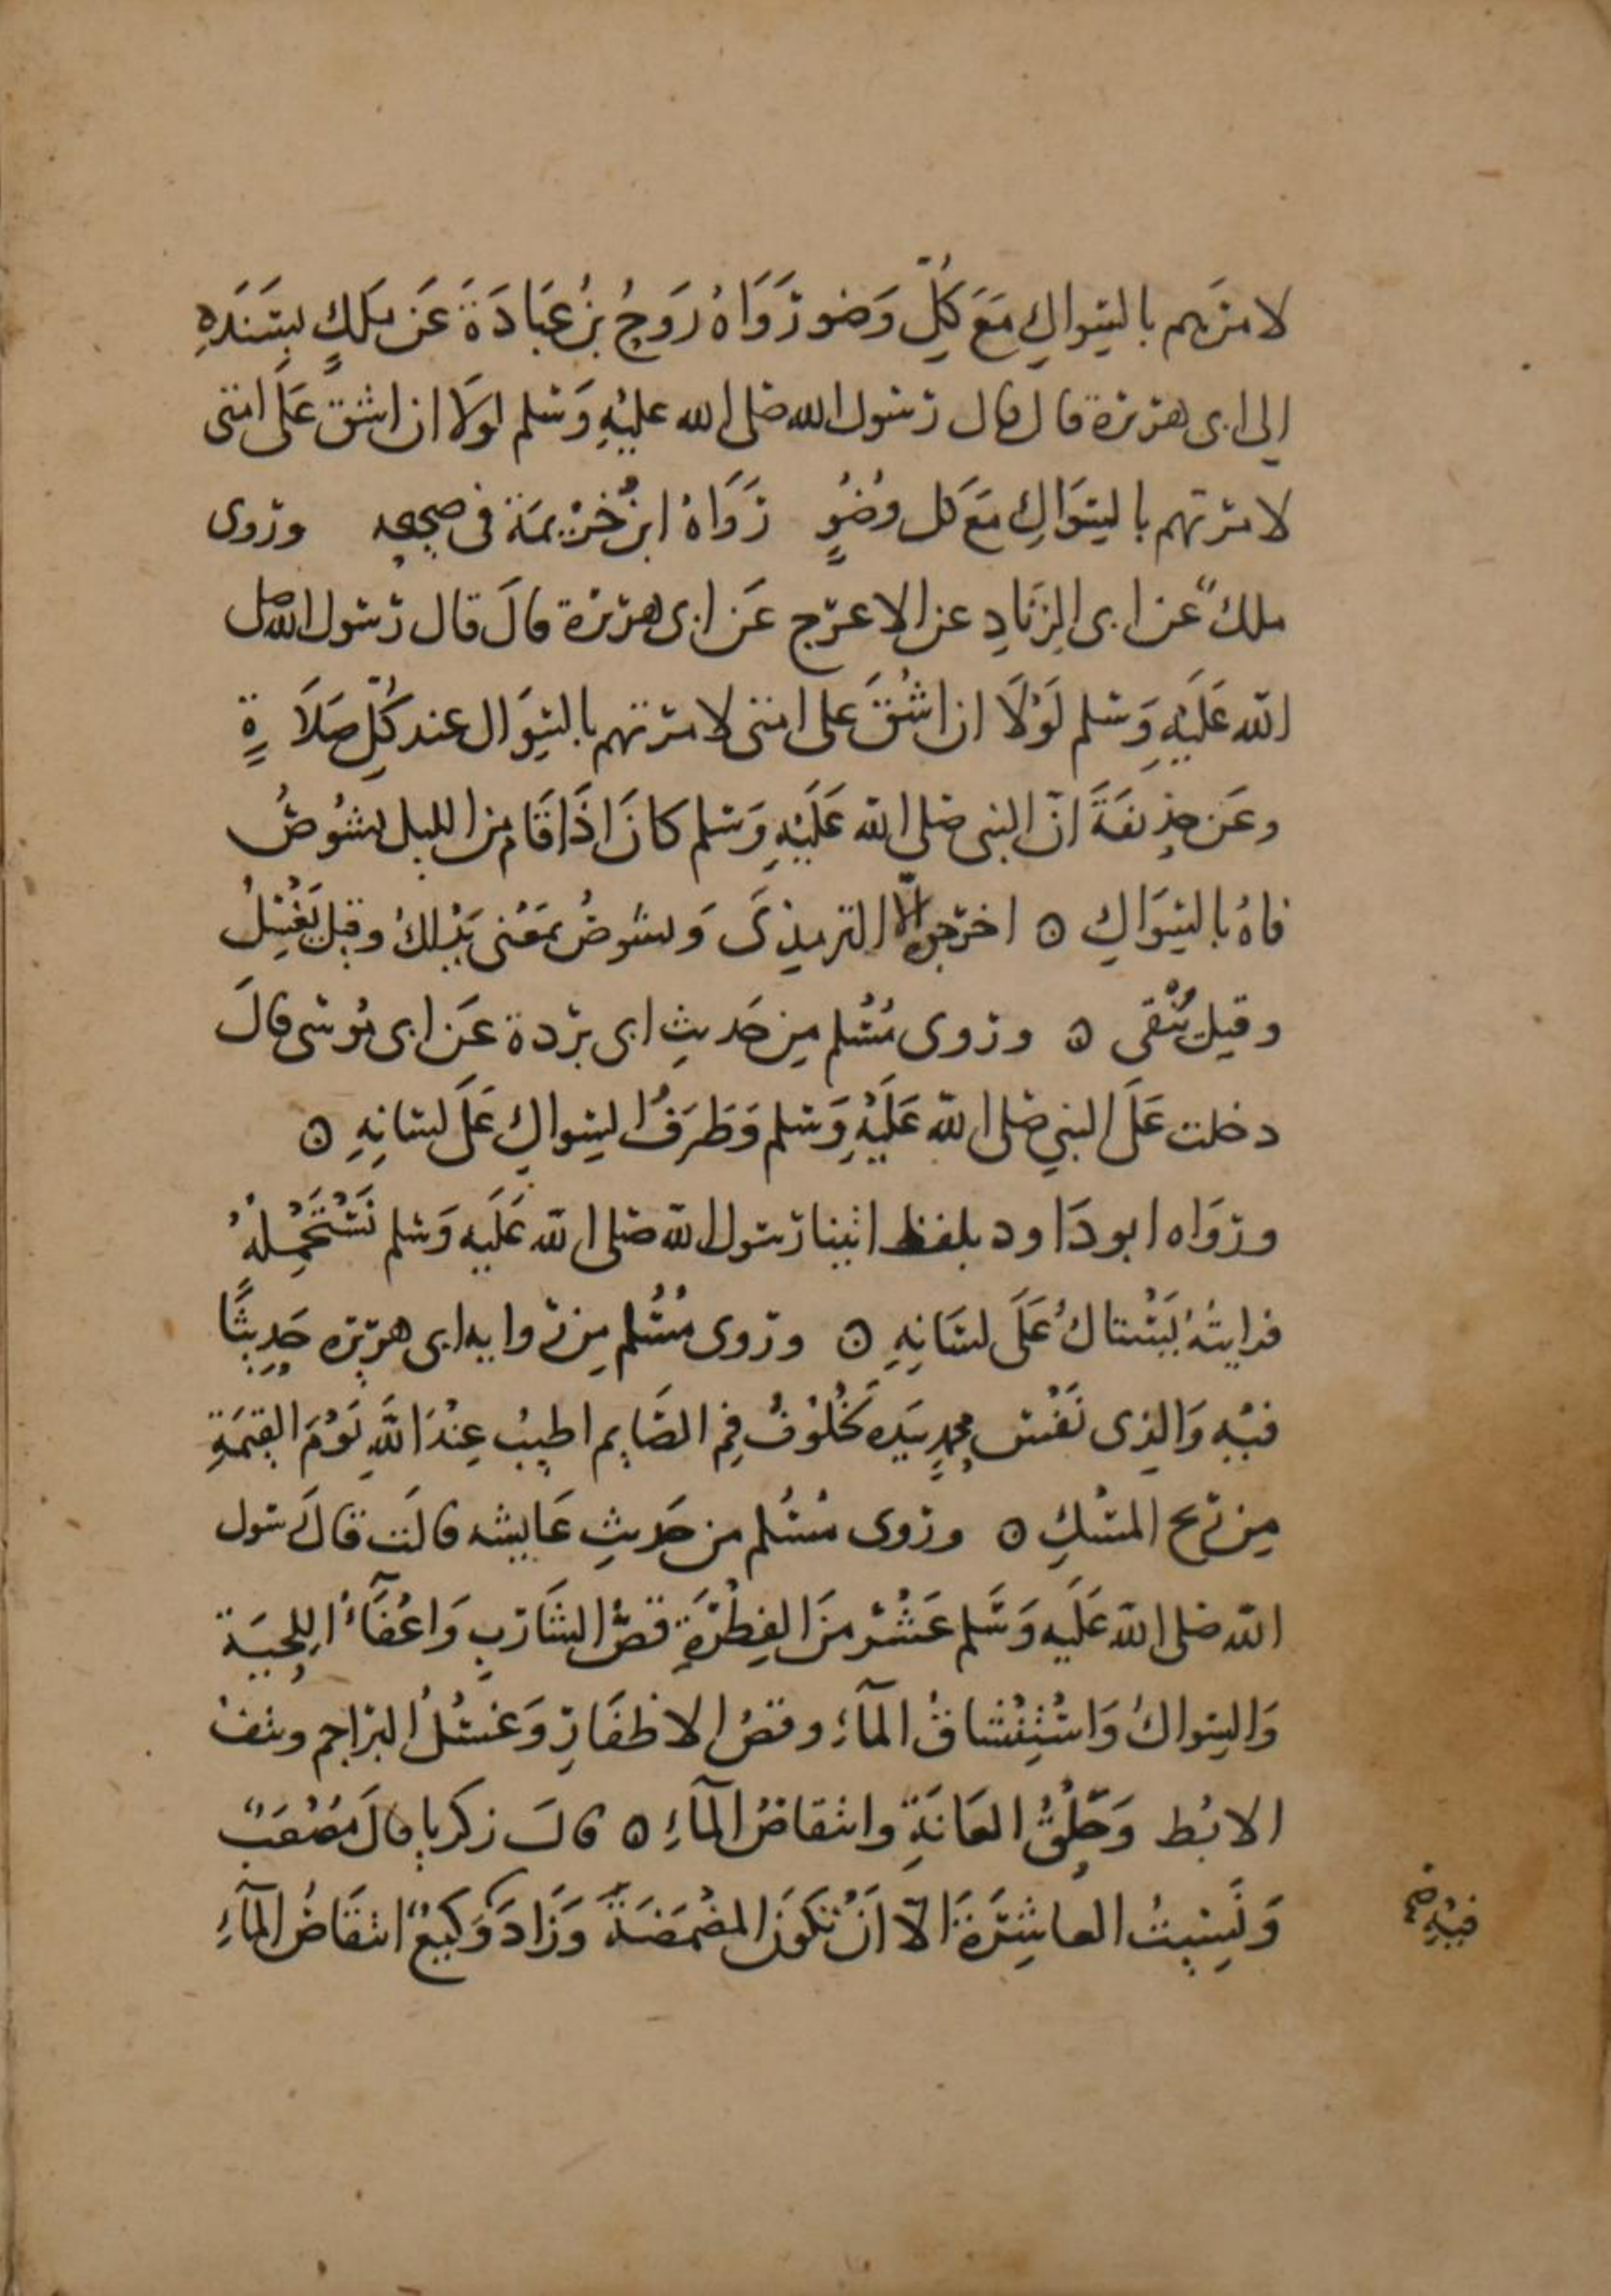 لامرتهم بالسِّواكِ مَعَ كُلِّ وَضو رَوَاهُ رَوحُ بنُ عُبَادَةَ عَن ملكٍ بسَنَدِهِ
الى ابى هريرة قال قال رسول الله صلى الله عليْهِ وَسلم لولَا ان اشق عَلَى امتى
لامرتهم بالسِّوَاكِ مَعَ كل وُضُوٍ رَوَاهُ ابنُ خُزيمَة فى صحيحه وروى
ملكٌ عن ابى الزِنَادِ عن الاعرج عَن ابى هريرة قالَ قال رسول الله صلى
الله عَلَيْهِ وَسلم لَوْلَا ان اشُقَّ على امتى لامرتهم بالسِّوَاك عند كُلِّ صَلَاةٍ
وعَن حذيفَةَ انّ النبى صلى الله عَلَيْهِ وَسلم كانَ اذَا قَام من الليل يشُوصُ
فاهُ بالسِّوَاكِ ۝ اخرجوه الّا الترمذىَ وَيشوصُ بمَعْنى يَدْلكُ وقيل يَغْسِلُ
وقيل يُنْقى ۝ وروى مُسْلم مِن حَديثِ ابى بردة عَن ابى مُوسى قالَ
دخلت عَلَى النبي صلى الله عَلَيْهِ وَسلم وَطَرَفُ السِّواكِ عَلَى لسَانِهِ ۝
وروَاه ابو دَاود بلفظ اتينا رسول الله صلى الله عَلَيه وَسلم نَسْتَحْمِلُهُ
فرايتُهُ يَسْتاكُ عَلَى لسَانِهِ ۝ وروى مُسْلم مِن روايه ابى هريره حَدِيثًا
فيْهِ وَالذِى نَفْس محمدٍ بيَدِه لخُلوْفُ فِم الصَّايم اطيبُ عِنْدَ اللَّهِ يَوْمَ القيمَةِ
مِن ريح المسْكِ ۝ وروى مُسْلم من حَديثِ عَايشه قالَت قالَ رسول
الله صلى الله عَلَيه وَسَلم عَشْر منَ الفِطْرَةِ قصُّ الشَارِبِ وَاعْفَآءُ اللِحْيَة
وَالسِّواكُ وَاسْتِنْشَاقُ المآءِ وقصُ الاظفَارِ وَغسْلُ البراجم ونتفُ
الابْط وَحَلْقُ العَانَةِ وانتقاصُ المآءِ ۝ قالَ زكريا قالَ مُصْعَبٌ
وَنَسِيتُ العاشِرَةَ الّا انْ تكونَ المضْمَضَةَ وَزَادَ وَكيعٌ انتقَاصُ المآءِ